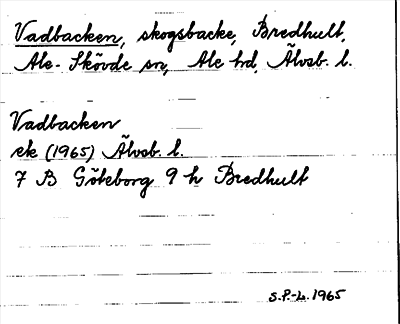 Vadbacken, skogsbacke, Bredhult,
Ale-Skövde sn, Ale hd, Älvsb. l.
Vadbacken
ek (1965) Älvsb. l.
7 B Göteborg 9 h Bredhult
S.P.-L. 1965